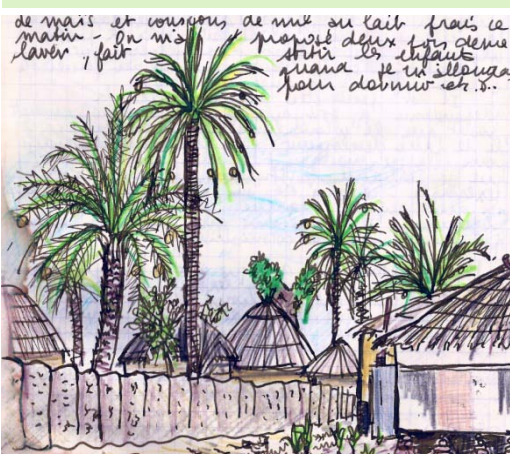 de maïs et couscous de mil au lait frais ce
matin - On m'a proposé deux fois de me
laver, fait sortir les enfants
quand je m'allonge
pour dormir etc...